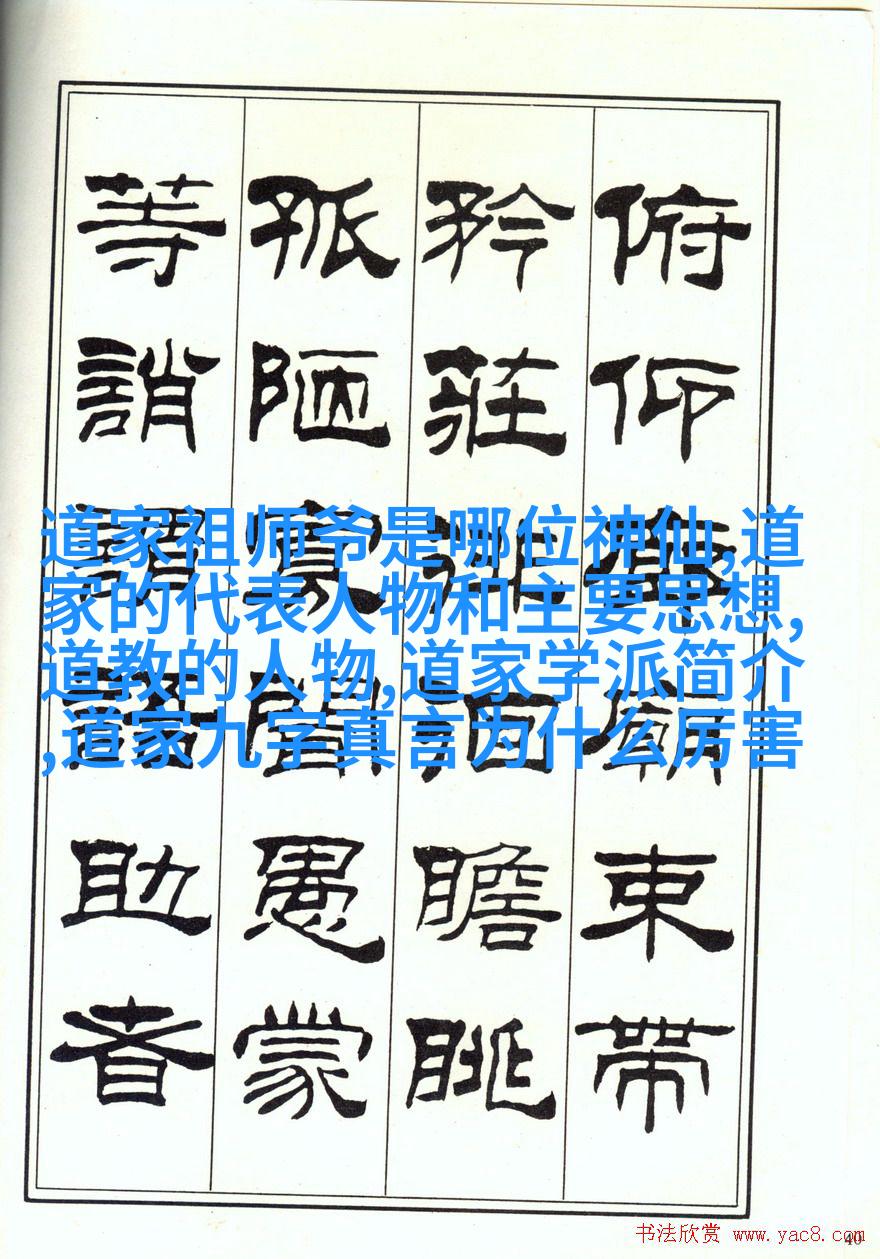 俯仰廊廟束帶
矜莊徘徊瞻眺
孤陋寡聞愚蒙
等誚謂語助者
道家祖师爷是哪位神仙,道
家的代表人物和主要思想,
道教的人物,道家学派简介
,道家九字真言为什么厉害
书法欣赏 www.yac8.com
40